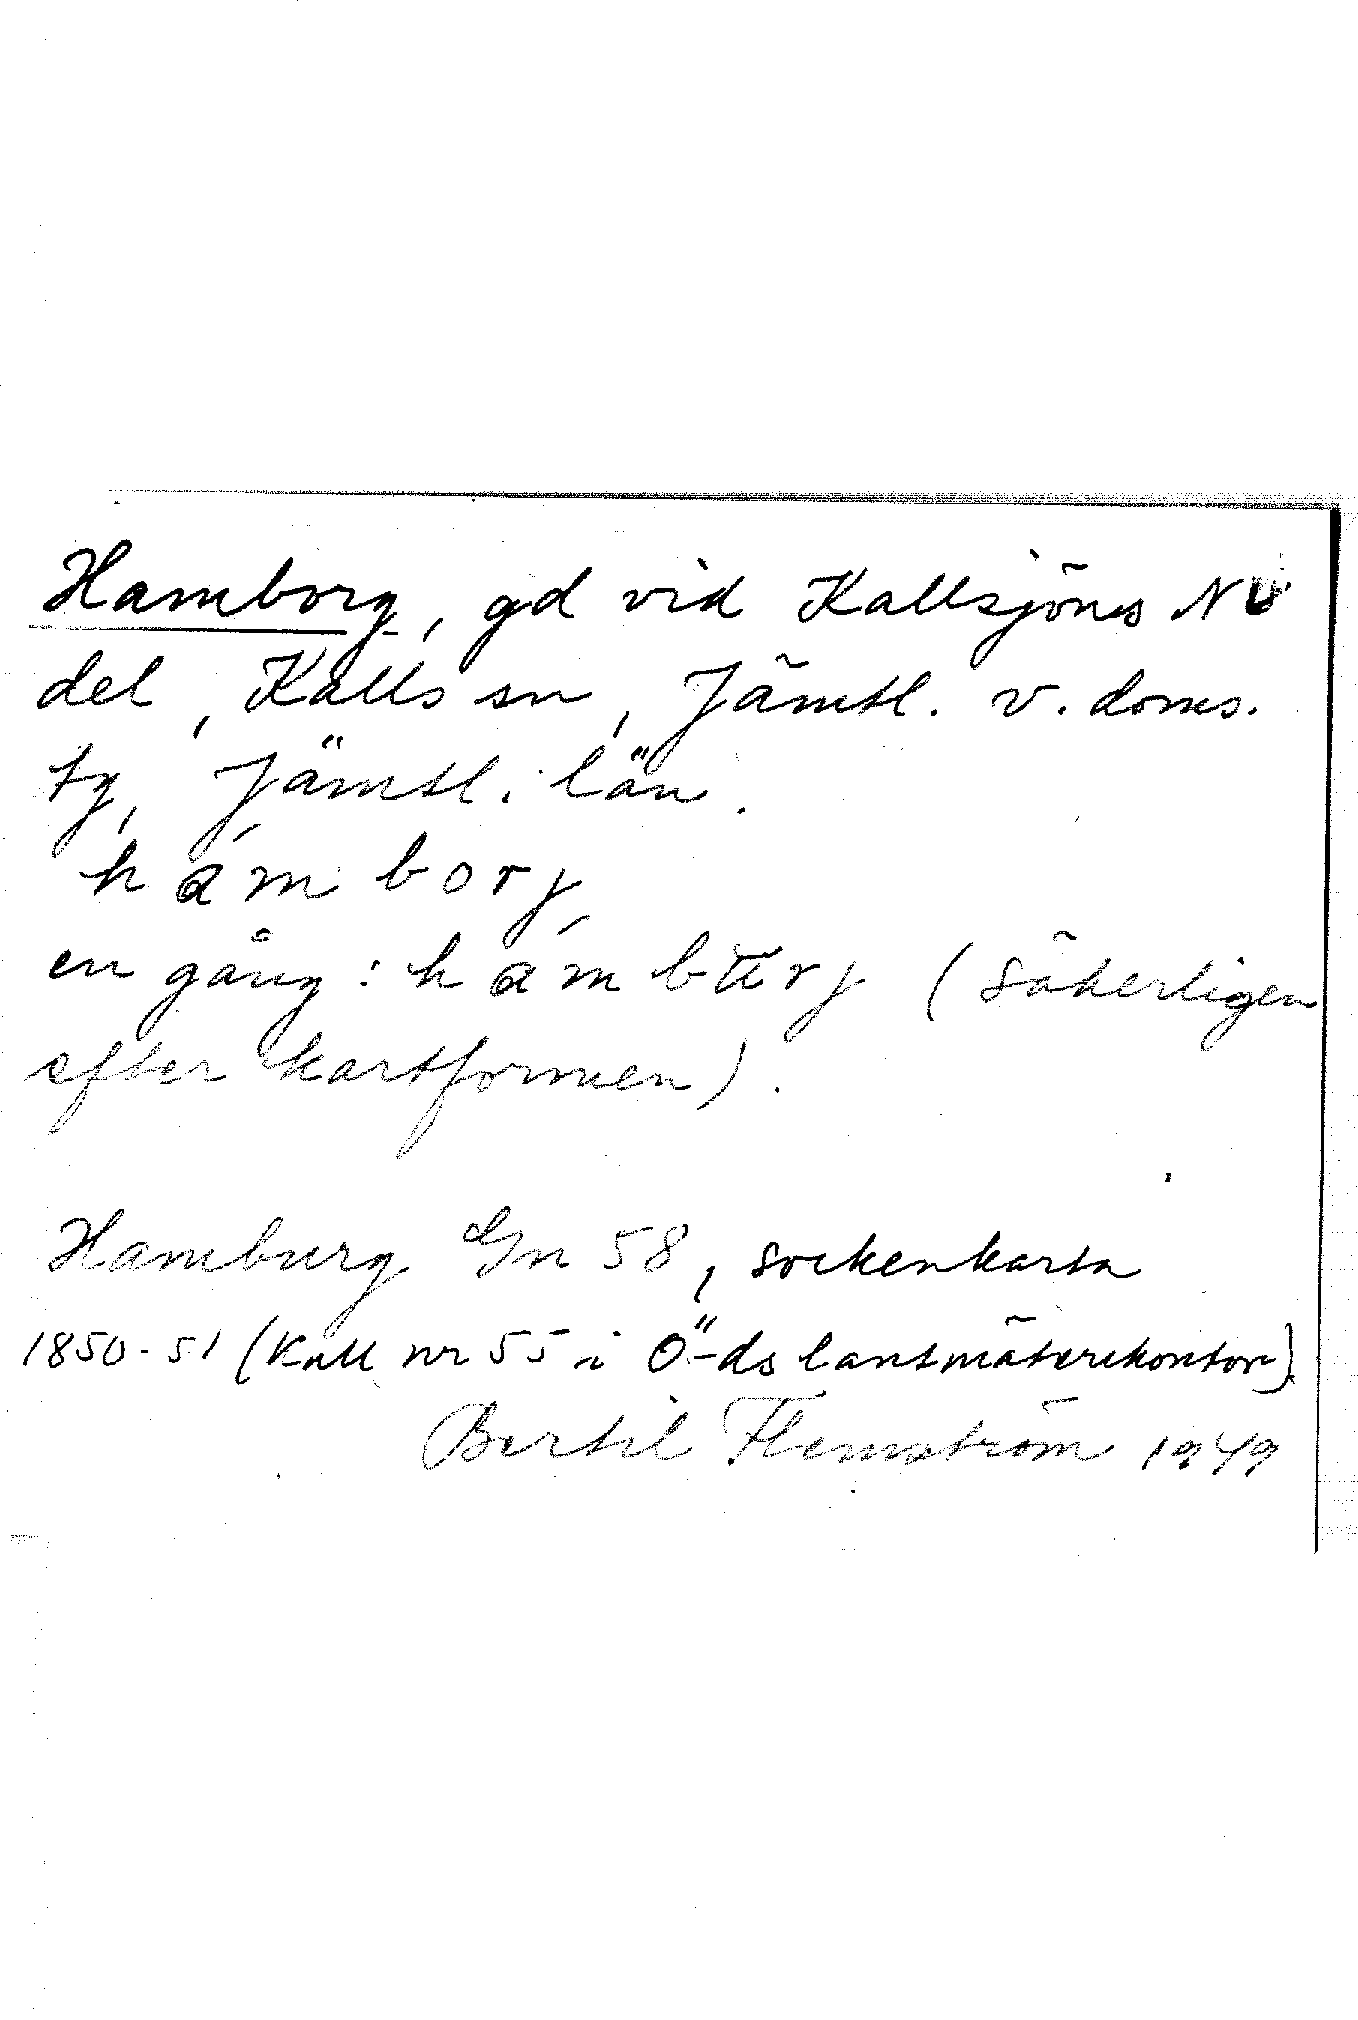 Hamborg, gd vid Kallsjöns N
del, Kalls sn, Jämtl. v. doms.
tg, Jämtl. län.
hámborj
en gång: hámbu̅rj (säkerligen
efter kartformen).
Hamburg Gn 58, sockenkarta
1850-51 (Kall nr 55 i Ö-ds lantmäterikontor)
Bertil Flemström 1949